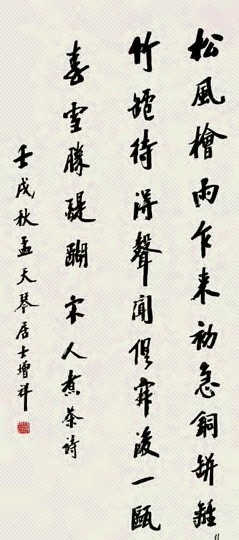 松風檜雨乍来初急銅缾離
竹爐待得聲聞俱寂後一甌
喜雪勝醍醐 宋人煮茶詩
壬戌秋孟天琴居士增祥